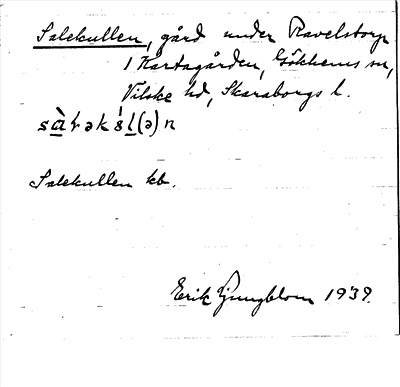 Salekullen, gård under Ravelstorp
1 Kårtagården, Gökhems sn,
Vilske hd, Skaraborgs l.
sàɽək s̍l(ə)n
Salekullen kb.
Erik Ljungblom 1939.